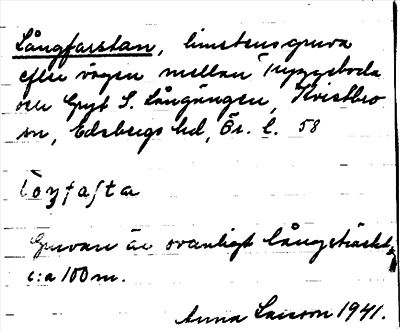 Långfasstan, limstensgruva
efter vägen mellan Nyggeboda
och Gryt S. Långängen, Kvistbro
sn, Edsbergs hd, Ör. l. 58
Gruvan är ovanligt långsträckt,
c:a 100 m.
Anna Larsson 1941.